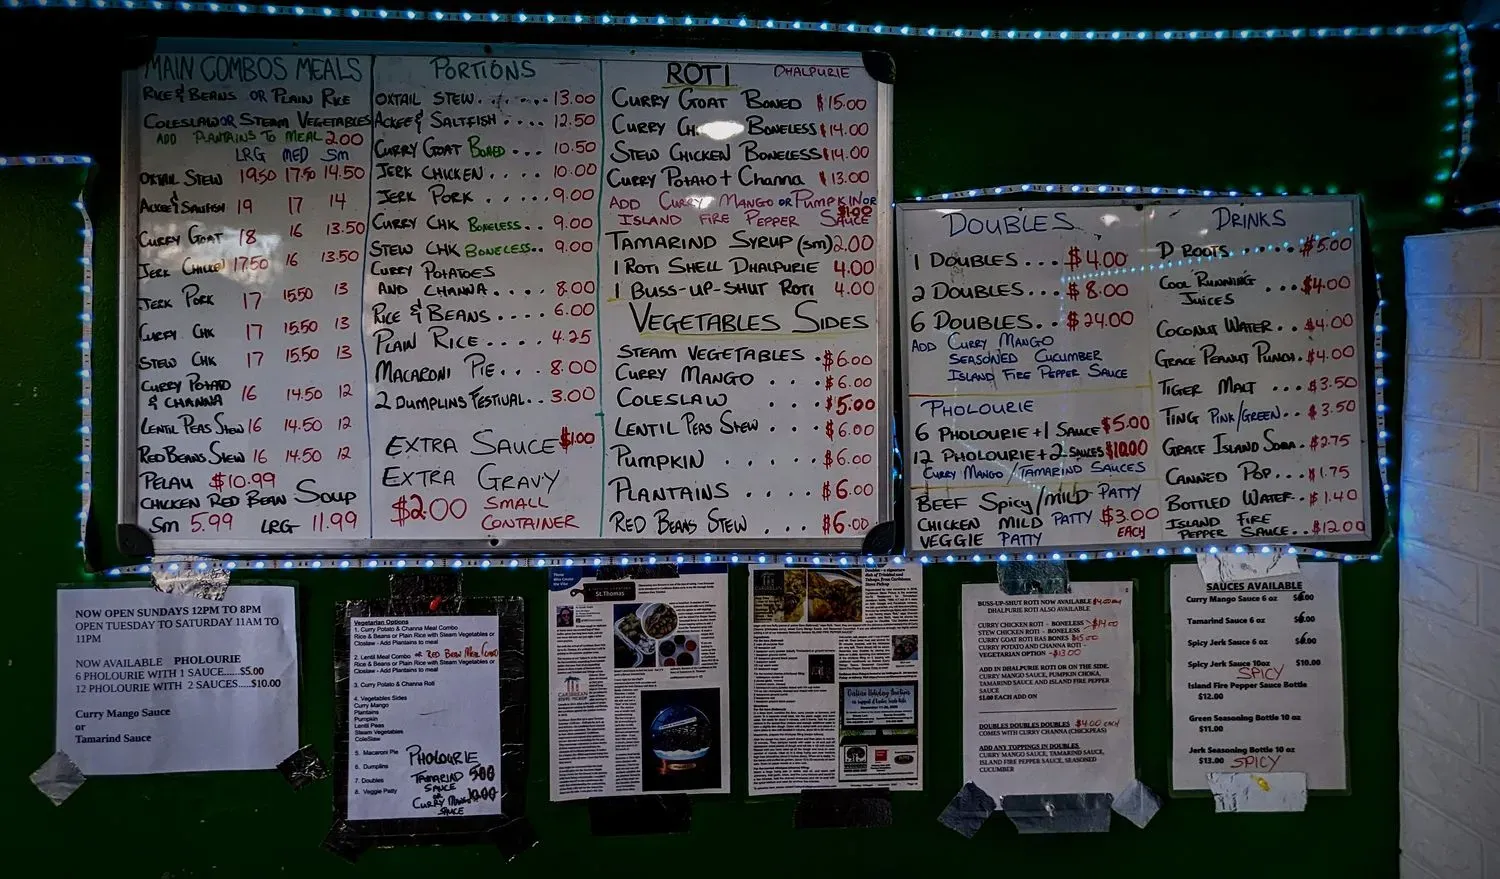 MAIN COMBOS MEALS
RICE & BEANS OR PLAIN RICE
COLESLAW OR STEAM VEGETABLES
ADD PLANTAINS TO MEAL 2.00
LRG MED SM
OXTAIL STEW 19.50 17.50 14.50
ACKEE & SALTFISH 19 17 14
CURRY GOAT 18 16 13.50
JERK CHICKEN 17.50 16 13.50
JERK PORK 17 15.50 13
CURRY CHK 17 15.50 13
STEW CHK 17 15.50 13
CURRY POTATO
& CHANNA 16 14.50 12
LENTIL PEAS STEW 16 14.50 12
RED BEANS STEW 16 14.50 12
PELAU $10.99
CHICKEN RED BEAN SOUP
SM 5.99 LRG 11.99
PORTIONS
OXTAIL STEW....... 13.00
ACKEE & SALTFISH.... 12.50
CURRY GOAT BONED... 10.50
JERK CHICKEN.... 10.00
JERK PORK... 9.00
CURRY CHK BONELESS.. 9.00
STEW CHK BONELESS.. 9.00
CURRY POTATOES
AND CHANNA... 8.00
RICE & BEANS.... 6.00
PLAIN RICE.... 4.25
MACARONI PIE... 8.00
2 DUMPLINS FESTIVAL.. 3.00
EXTRA SAUCE $1.00
EXTRA GRAVY
$2.00 SMALL
CONTAINER
ROTI DHALPURIE
CURRY GOAT BONED $15.00
CURRY CH BONELESS $14.00
STEW CHICKEN BONELESS $14.00
CURRY POTATO + CHANNA $13.00
ADD CURRY MANGO OR PUMPKIN OR
ISLAND FIRE PEPPER SAUCE $1.00
TAMARIND SYRUP (SM) 2.00
1 ROTI SHELL DHALPURIE 4.00
1 BUSS-UP-SHUT ROTI 4.00
VEGETABLES SIDES
STEAM VEGETABLES . $6.00
CURRY MANGO . . . $6.00
COLESLAW . . . $5.00
LENTIL PEAS STEW . . $6.00
PUMPKIN . . . . $6.00
PLANTAINS . . . . $6.00
RED BEANS STEW . . . $6.00
DOUBLES
1 DOUBLES... $4.00
2 DOUBLES... $8.00
6 DOUBLES.. $24.00
ADD CURRY MANGO
SEASONED CUCUMBER
ISLAND FIRE PEPPER SAUCE
PHOLOURIE
6 PHOLOURIE + 1 SAUCE $5.00
12 PHOLOURIE + 2 SAUCES $10.00
CURRY MANGO / TAMARIND SAUCES
BEEF SPICY / MILD PATTY
CHICKEN MILD PATTY $3.00
VEGGIE PATTY EACH
DRINKS
D ROOTS ... $5.00
COOL RUNNING
JUICES ... $4.00
COCONUT WATER... $4.00
GRACE PEANUT PUNCH. $4.00
TIGER MALT ... $3.50
TING PINK/GREEN.. $3.50
GRACE ISLAND SODA. $2.75
CANNED POP... $1.75
BOTTLED WATER.. $1.40
ISLAND FIRE
PEPPER SAUCE.. $12.00
NOW OPEN SUNDAYS 12PM TO 8PM
OPEN TUESDAY TO SATURDAY 11AM TO
11PM
NOW AVAILABLE PHOLOURIE
6 PHOLOURIE WITH 1 SAUCE.....$5.00
12 PHOLOURIE WITH 2 SAUCES.....$10.00
Curry Mango Sauce
or
Tamarind Sauce
Vegetarian Options
1. Curry Potato & Channa Meal Combo
Rice & Beans or Plain Rice with Steam Vegetables or
Closlaw - Add Plantains to meal
2. Lentil Meal Combo OR RED BEAN MEAL COMBO
Rice & Beans or Plain Rice with Steam Vegetables or
Closlaw - Add Plantains to meal
3. Curry Potato & Channa Roti
4. Vegetables Sides
Curry Mango
Plantains
Pumpkin
Lentil Peas
Steam Vegetables
ColeSlaw
5. Macaroni Pie
6. Dumplins
7. Doubles
8. Veggie Patty
PHOLOURIE
TAMARIND 5.00
SAUCE
OR
CURRY MANGO 10.00
SAUCE
St.Thomas
CARIBBEAN
BUSS-UP-SHUT ROTI NOW AVAILABLE $4.00
DHALPURIE ROTI ALSO AVAILABLE
CURRY CHICKEN ROTI - BONELESS $14.00
STEW CHICKEN ROTI - BONELESS
CURRY GOAT ROTI HAS BONES $15.00
CURRY POTATO AND CHANNA ROTI -
VEGETARIAN OPTION - $13.00
ADD IN DHALPURIE ROTI OR ON THE SIDE.
CURRY MANGO SAUCE, PUMPKIN CHOKA,
TAMARIND SAUCE AND ISLAND FIRE PEPPER
SAUCE
$1.00 EACH ADD ON
DOUBLES DOUBLES DOUBLES $4.00 EACH
COMES WITH CURRY CHANNA (CHICKPEAS)
ADD ANY TOPPINGS IN DOUBLES
CURRY MANGO SAUCE, TAMARIND SAUCE,
ISLAND FIRE PEPPER SAUCE, SEASONED
CUCUMBER
SAUCES AVAILABLE
Curry Mango Sauce 6 oz
Tamarind Sauce 6 oz
Spicy Jerk Sauce 6 oz
Spicy Jerk Sauce 10oz $10.00
SPICY
Island Fire Pepper Sauce Bottle
$12.00
Green Seasoning Bottle 10 oz
$11.00
Jerk Seasoning Bottle 10 oz
$13.00 SPICY